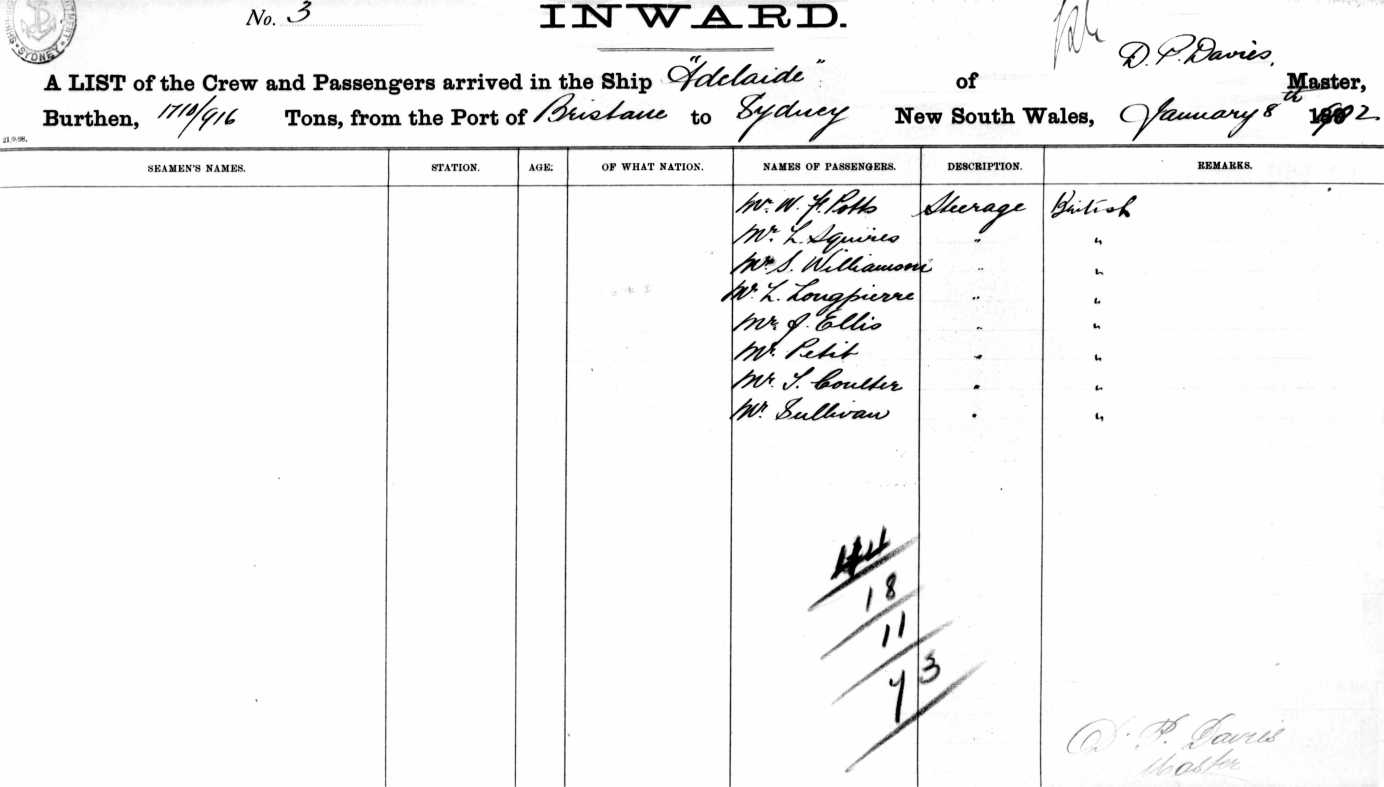 No. 3
INWARD.
SYDNEY
D. P. Davies,
A LIST of the Crew and Passengers arrived in the Ship "Adelaide" of Master,
Burthen, 1710/916 Tons, from the Port of Brisbane to Sydney New South Wales, January 8th 1902
21.9-98.
SEAMEN'S NAMES. STATION. AGE: OF WHAT NATION. NAMES OF PASSENGERS. DESCRIPTION. REMARKS.
Mr. W. F. Potts Steerage British
Mr. L. Squires " "
Mr. S. Williamson " "
Mr. L. Longpierre " "
Mr. J. Ellis " "
Mr. Petit " "
Mr. T. Coulter " "
Mr. Sullivan " "
44
18
11
73
D. P. Davies
Master